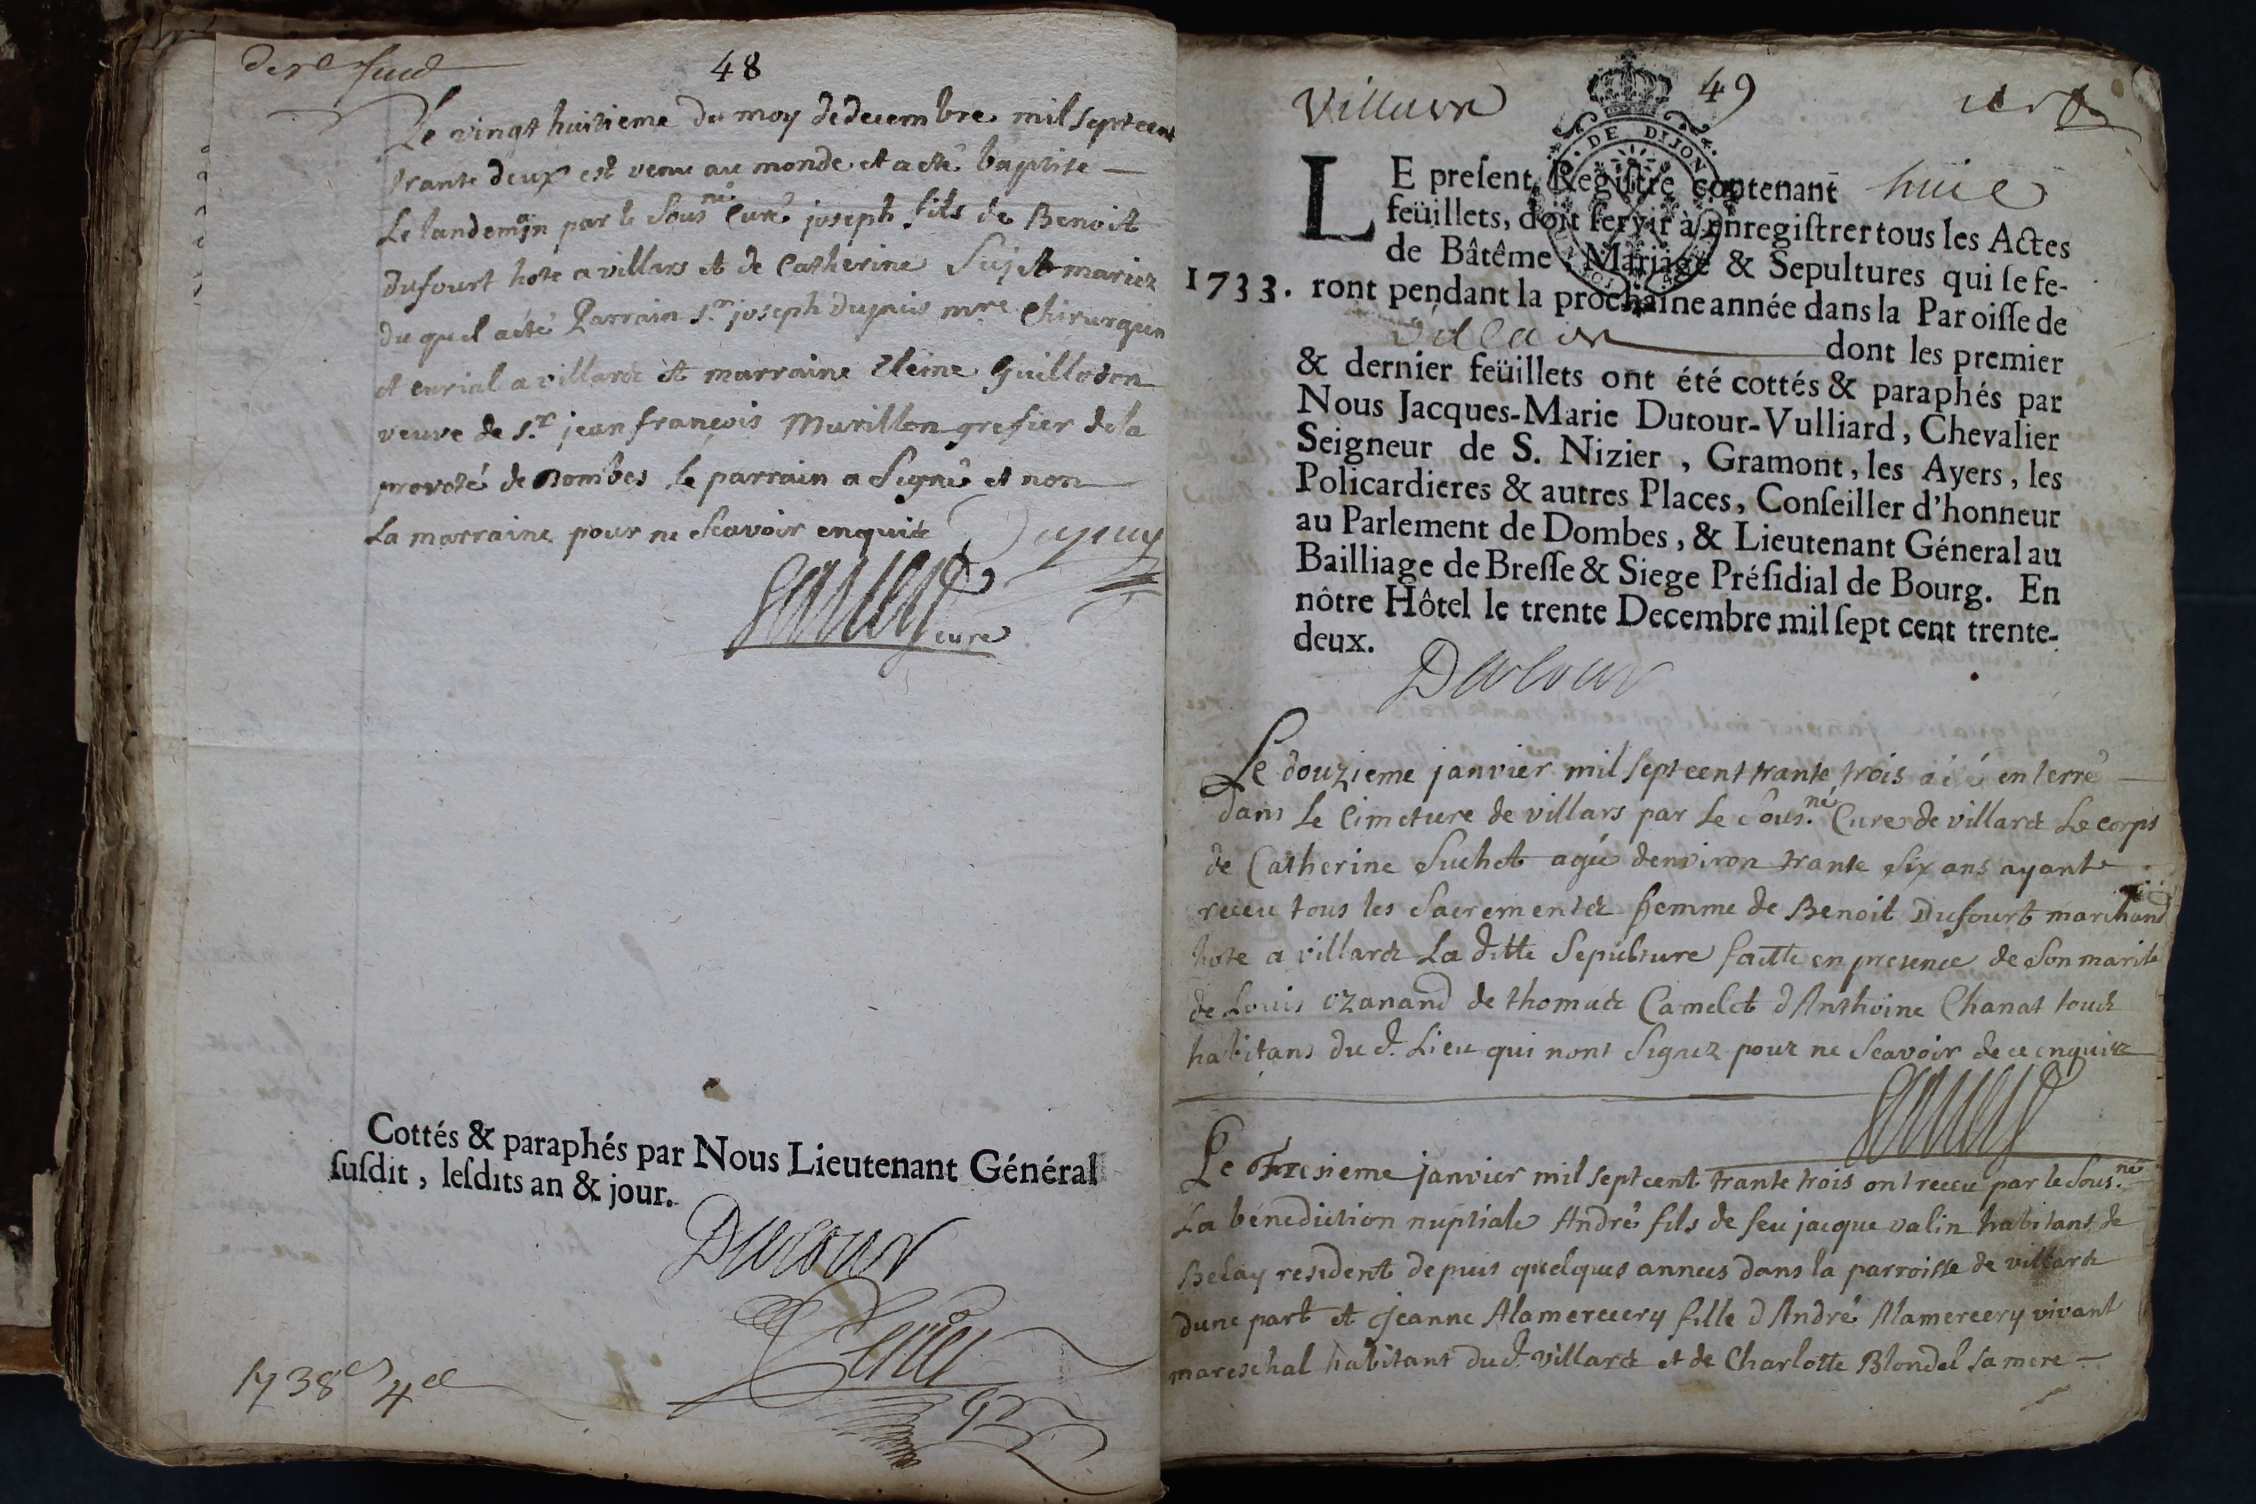 48
Le vingt huitieme du moy de decembre mil sept cent
trante deux est venu au monde et a eté baptise
Le landemain par le Sous.né Curé joseph fils de Benoit
dufourt hote a villars et de Catherine Sujet mariez
du quel a eté Parrain s.r joseph dupuis mre Chirurgien
et curial a villards et marraine Eleine Guillodon
veuve de s.r jean françois Murillon grefier de la
provoté de Dombes le parrain a Signé et non
La marraine pour ne Scavoir enquit Dupuy
curé
Cottés & paraphés par Nous Lieutenant Général
susdit, lesdits an & jour.
Dutour
1738
49
Villars
DE DIJON
LE present Registre contenant huit
feüillets, doit servir à enregistrer tous les Actes
de Bâtême, Mariage & Sepultures qui se fe-
1733. ront pendant la prochaine année dans la Paroisse de
Villars dont les premier
& dernier feüillets ont été cottés & paraphés par
Nous Jacques-Marie Dutour-Vulliard, Chevalier
Seigneur de S. Nizier, Gramont, les Ayers, les
Policardieres & autres Places, Conseiller d'honneur
au Parlement de Dombes, & Lieutenant Géneral au
Bailliage de Bresse & Siege Présidial de Bourg. En
nôtre Hôtel le trente Decembre mil sept cent trente-
deux.
Dutour
Le douzieme janvier mil sept cent trante trois a eté enterré
dans Le Cimetiere de villars par Le Sous.né Cure de villards Le corps
de Catherine Suchet agée denviron trante Six ans ayant
receu tous les Sacrements femme de Benoit Dufourt marchand
hote a villards La ditte Sepulture faitte en presence de Son marit
de Louis Ozanand de thomas Camelet d'Anthoine Chanat tous
habitans du d. Lieu qui nont Signez pour ne Scavoir de ce enquis
Le Tresieme janvier mil sept cent trante trois ont receu par le Sous.né
La bénediction nuptiale André fils de feu jacque valin habitans de
Belay resident depuis quelques annees dans la parroisse de villards
dune part et Jeanne Alamercery fille d'André Alamercery vivant
mareschal habitant du d. villards et de Charlotte Blondel sa mere